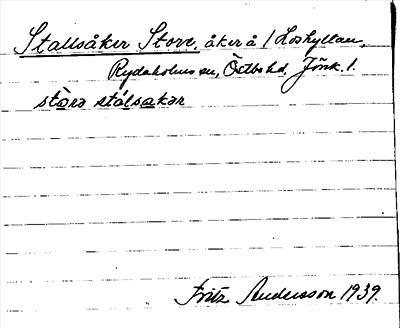 Stallsåker Store, åker å 1 Horhyltan,
Rydaholms sn, Östbo hd, Jönk. l.
stòrə stálsakər
Fritz Andersson 1939.